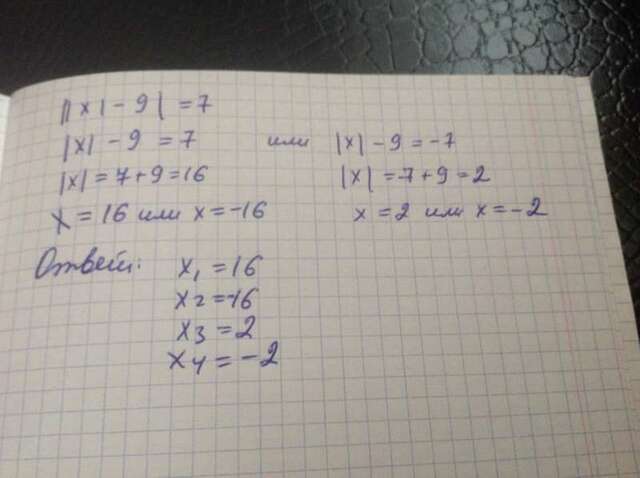 ||x|-9|=7
|x|-9=7 или |x|-9=-7
|x|=7+9=16 |x|=-7+9=2
x=16 или x=-16 x=2 или x=-2
Ответ: x₁=16
x₂=-16
x₃=2
x₄=-2